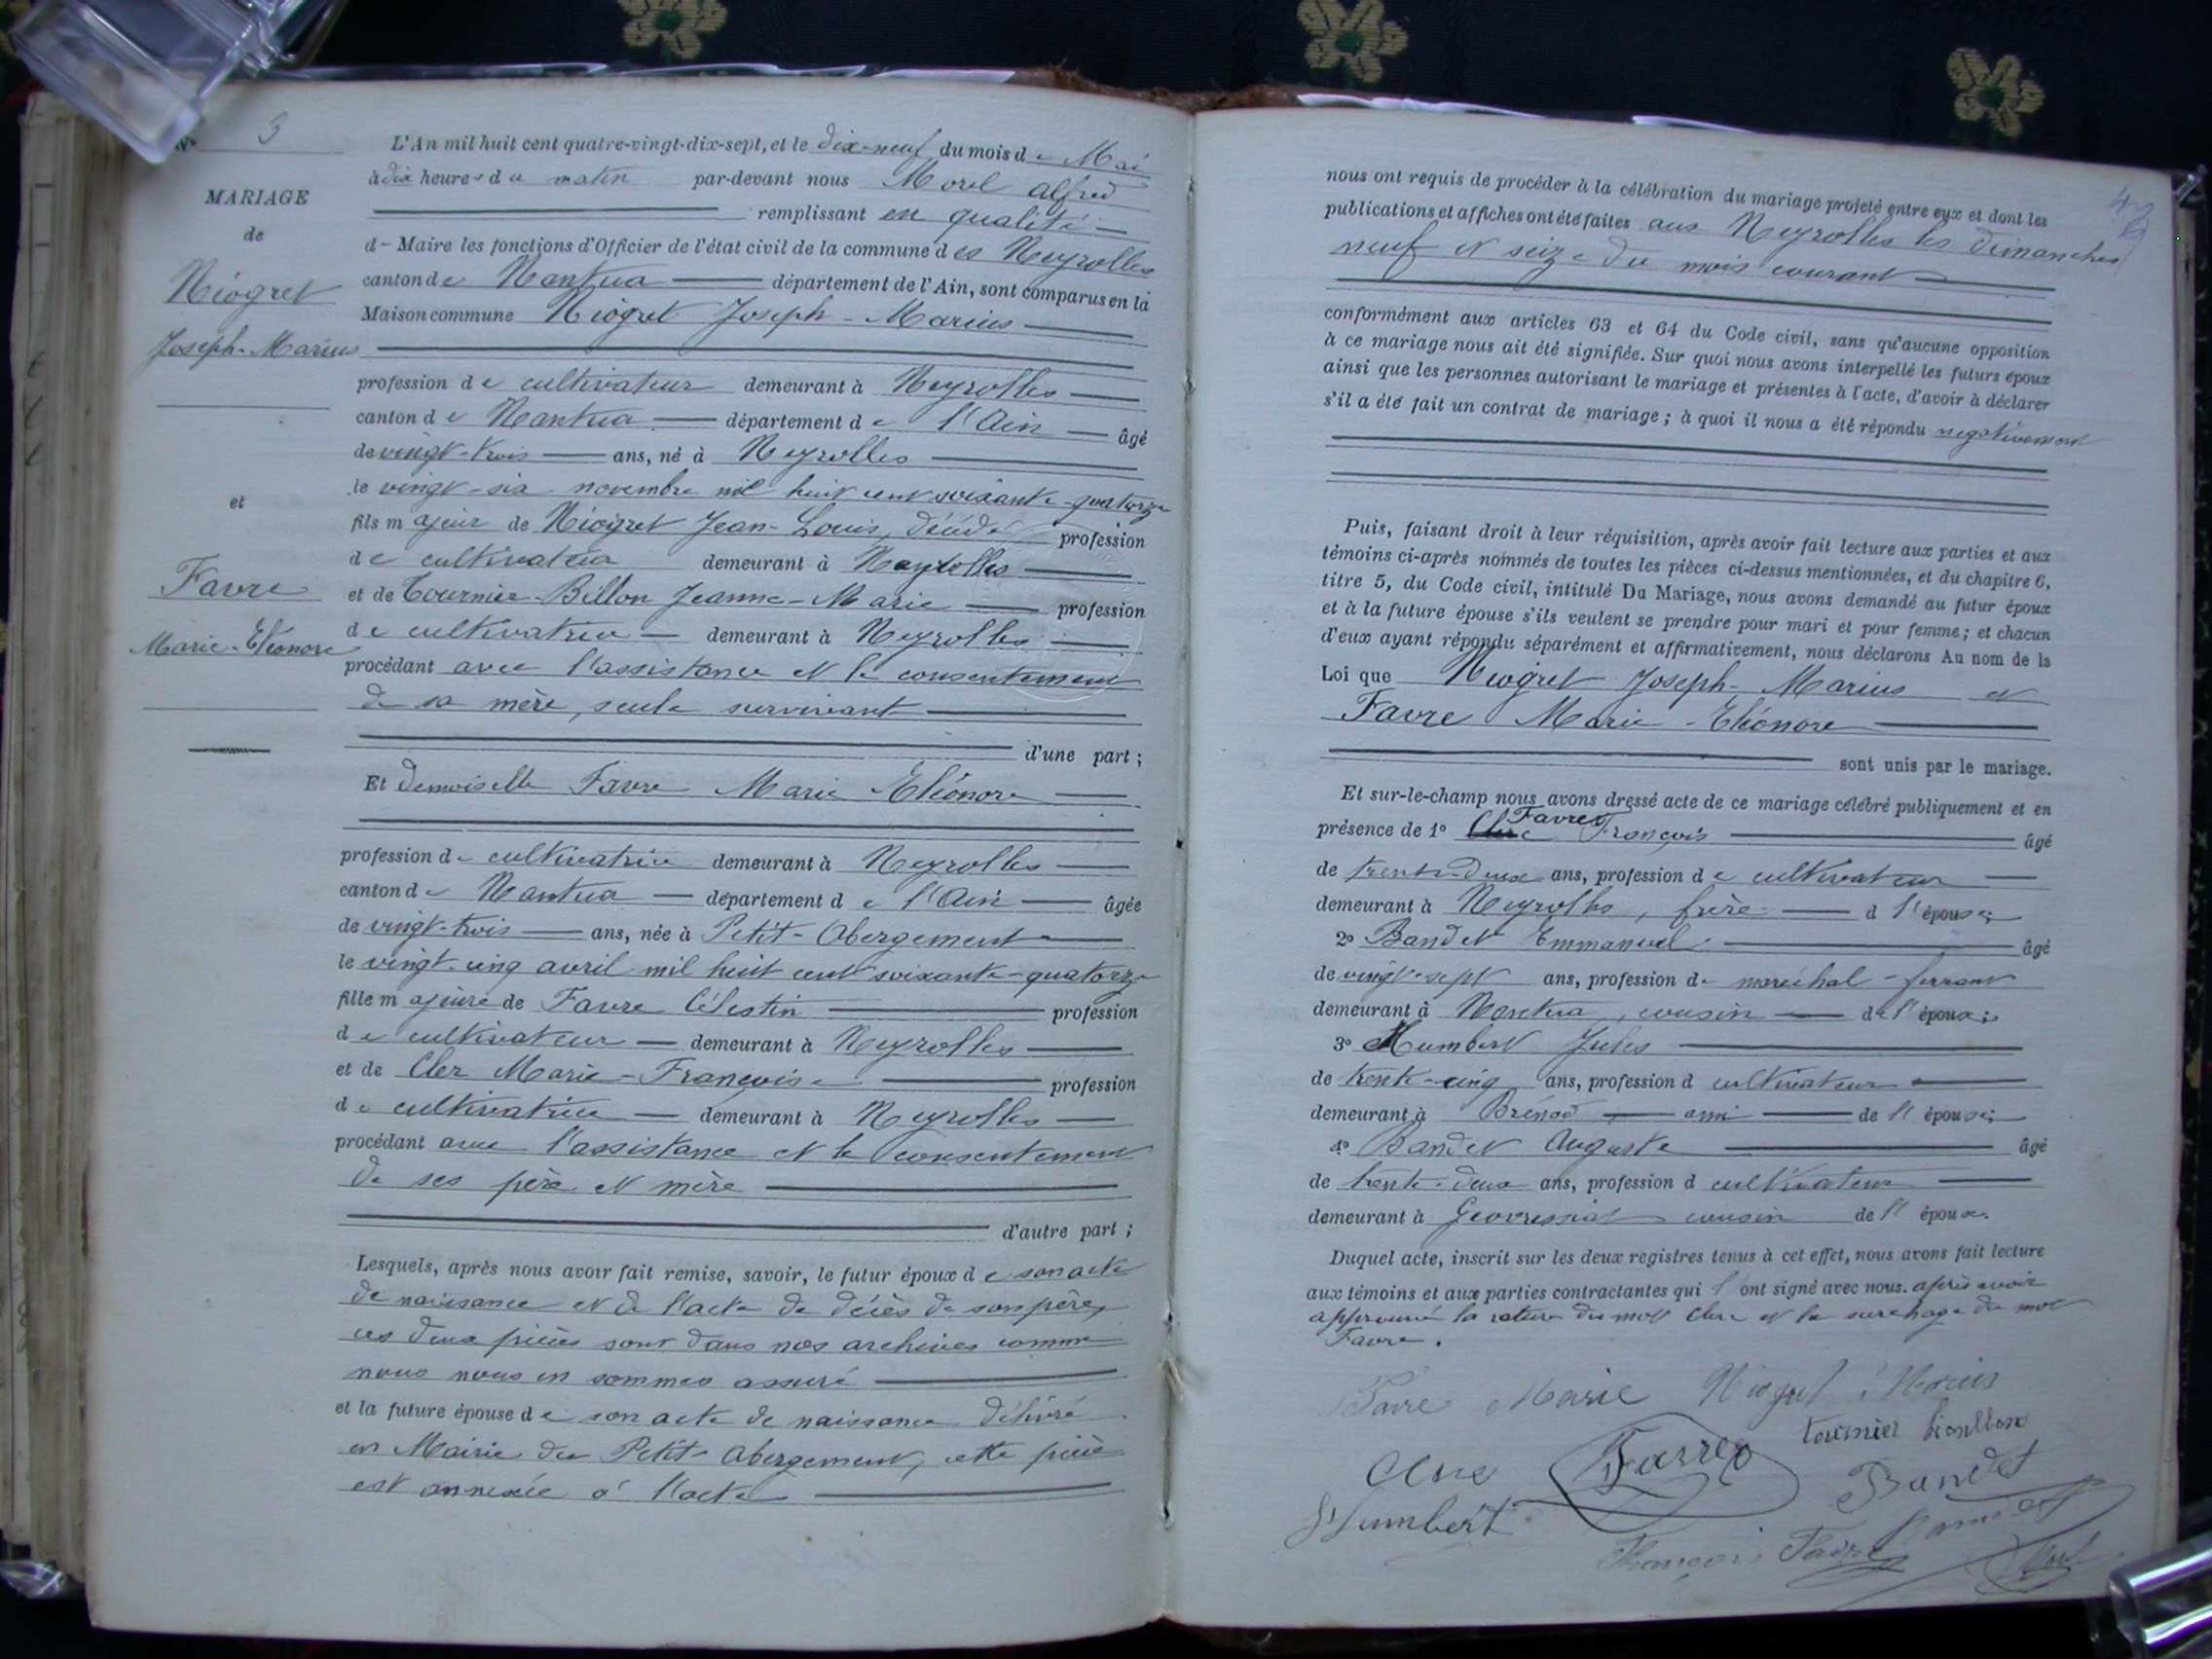 N° 3
MARIAGE
de
Niogret
Joseph-Marius
et
Favre
Marie-Eléonore
L'An mil huit cent quatre-vingt-dix-sept, et le dix-neuf du mois de Mai
à dix heures du matin par-devant nous Morel alfred
remplissant en qualité
d- Maire les fonctions d'Officier de l'état civil de la commune des Neyrolles
canton de Nantua département de l'Ain, sont comparus en la
Maison commune Niogret Joseph-Marius
profession de cultivateur demeurant à Neyrolles
canton de Nantua département de l'Ain âgé
de vingt-trois ans, né à Neyrolles
le vingt-six novembre mil huit cent soixante-quatorze
fils majeur de Niogret Jean-Louis, décédé profession
de cultivateur demeurant à Neyrolles
et de Tournier-Billon Jeanne-Marie profession
de cultivatrice demeurant à Neyrolles
procédant avec l'assistance et le consentement
de sa mère, seule survivant
d'une part ;
Et demoiselle Favre Marie Eléonore
profession de cultivatrice demeurant à Neyrolles
canton de Nantua département de l'Ain âgée
de vingt-trois ans, née à Petit-Abergement
le vingt-cinq avril mil huit cent soixante-quatorze
fille majeure de Favre Célestin profession
de cultivateur demeurant à Neyrolles
et de Cler Marie-Françoise profession
de cultivatrice demeurant à Neyrolles
procédant avec l'assistance et le consentement
de ses père et mère
d'autre part ;
Lesquels, après nous avoir fait remise, savoir, le futur époux de son acte
de naissance et de l'acte de décès de son père,
ces deux pièces sont dans nos archives comme
nous nous en sommes assuré
et la future épouse de son acte de naissance délivré
en Mairie du Petit-Abergement, cette pièce
est annexée à l'acte
nous ont requis de procéder à la célébration du mariage projeté entre eux et dont les
publications et affiches ont été faites aux Neyrolles les dimanches
neuf et seize du mois courant
conformément aux articles 63 et 64 du Code civil, sans qu'aucune opposition
à ce mariage nous ait été signifiée. Sur quoi nous avons interpellé les futurs époux
ainsi que les personnes autorisant le mariage et présentes à l'acte, d'avoir à déclarer
s'il a été fait un contrat de mariage ; à quoi il nous a été répondu negativement
Puis, faisant droit à leur réquisition, après avoir fait lecture aux parties et aux
témoins ci-après nommés de toutes les pièces ci-dessus mentionnées, et du chapitre 6,
titre 5, du Code civil, intitulé Du Mariage, nous avons demandé au futur époux
et à la future épouse s'ils veulent se prendre pour mari et pour femme ; et chacun
d'eux ayant répondu séparément et affirmativement, nous déclarons Au nom de la
Loi que Niogret Joseph-Marius et
Favre Marie-Eléonore
sont unis par le mariage.
Et sur-le-champ nous avons dressé acte de ce mariage célébré publiquement et en
présence de 1° Favre François âgé
de trente-deux ans, profession de cultivateur
demeurant à Neyrolles, frère d l'épouse ;
2° Bandet Emmanuel âgé
de vingt-sept ans, profession de maréchal-ferrant
demeurant à Nantua, cousin de l'époux ;
3° Humbert Jules
de trente-cinq ans, profession d cultivateur
demeurant à Brénod ami de l'épouse ;
4° Bandet Auguste âgé
de trente-deux ans, profession d cultivateur
demeurant à Geovressiat cousin de l'époux.
Duquel acte, inscrit sur les deux registres tenus à cet effet, nous avons fait lecture
aux témoins et aux parties contractantes qui l'ont signé avec nous. après avoir
approuvé la rature du mot Clerc et la surchage du mot
Favre.
Favre Marie Niogret Marius
Favre Tournier
Bandet
Humbert
François Favre Bandet Morel